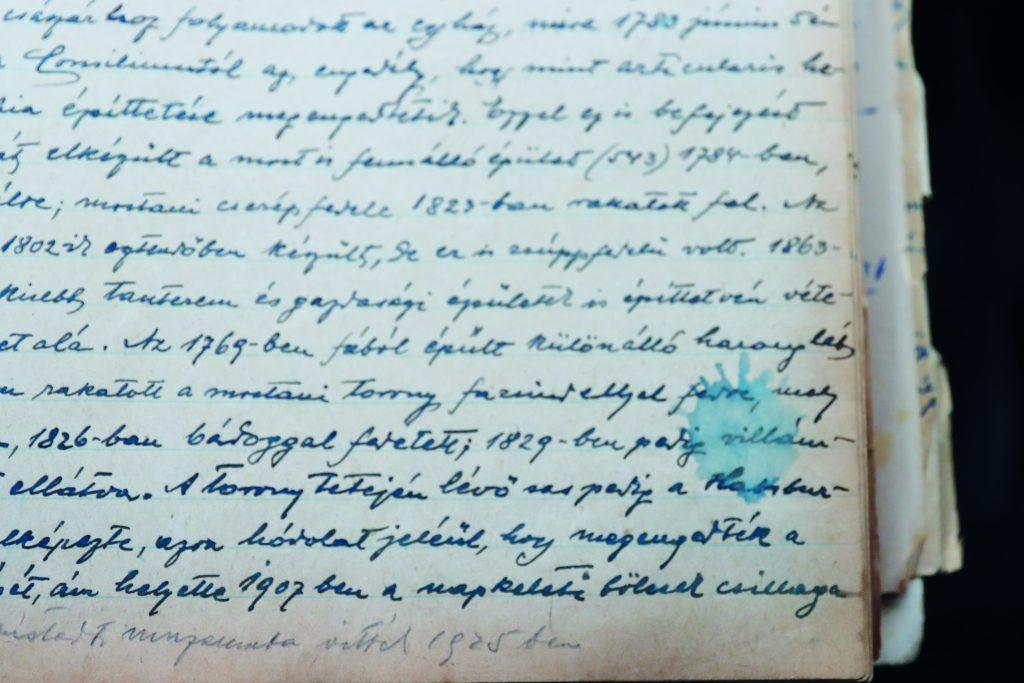 császárhoz folyamodott az egyház, mire 1783 június 5én
Consiliumtól az engedély, hogy mint articularis he-
építtetése megengedtetik. Ezzel ez is befejezést
elkészült a most is fennálló épület (543) 1784-ben,
mostani cserépfedele 1823-ban rakatott fel. Az
1802ik esztendőben készült, de ez is zsúppfedelű volt. 1863-
kisebb tanterem és gazdasági épületek is építtetvén véte-
alá. Az 1769-ben fából épült különálló harangláb
rakatott a mostani torony fazindellyel fedve, mely
1826-ban bádoggal fedetett; 1829-ben pedig villám-
ellátva. A torony tetején lévő sas pedig a Habsbur-
elképezte, azon hódolat jeléül, hogy megengedték a
ám helyette 1907 ben a napkeleti bölcsek csillaga
muzeumba vitték 1925 ben